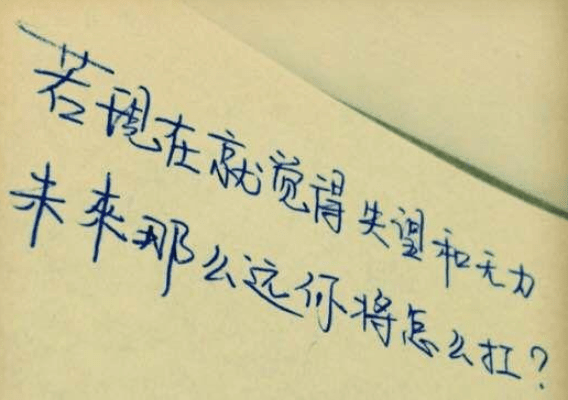 若现在就觉得失望和无力
未来那么远你将怎么扛?